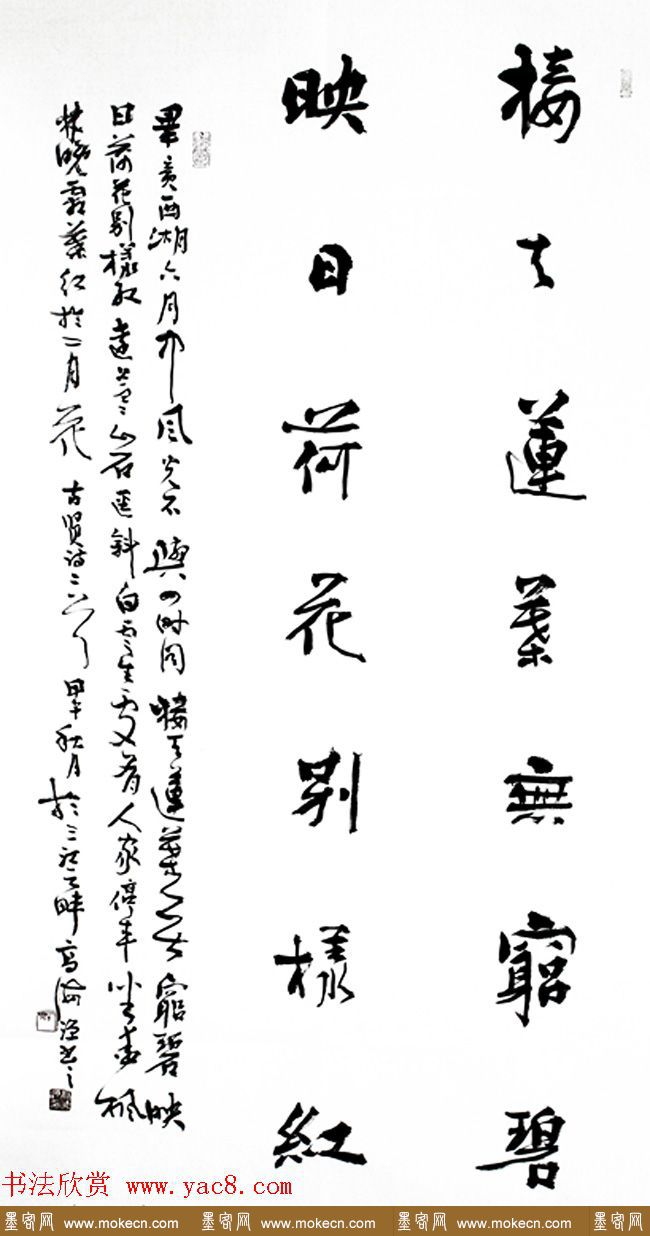 接天蓮葉無窮碧
映日荷花別樣紅
畢竟西湖六月中風光不與四時同接天蓮葉無窮碧映
日荷花別樣紅遠上寒山石徑斜白雲生處有人家停車坐愛楓
林晚霜葉紅於二月花 古賢詩二首 甲午秋月於三江畔高海書之
书法欣赏 www.yac8.com
墨客网 www.mokecn.com 墨客网 www.mokecn.com 墨客网 www.mokecn.com 墨客网 www.mokecn.com